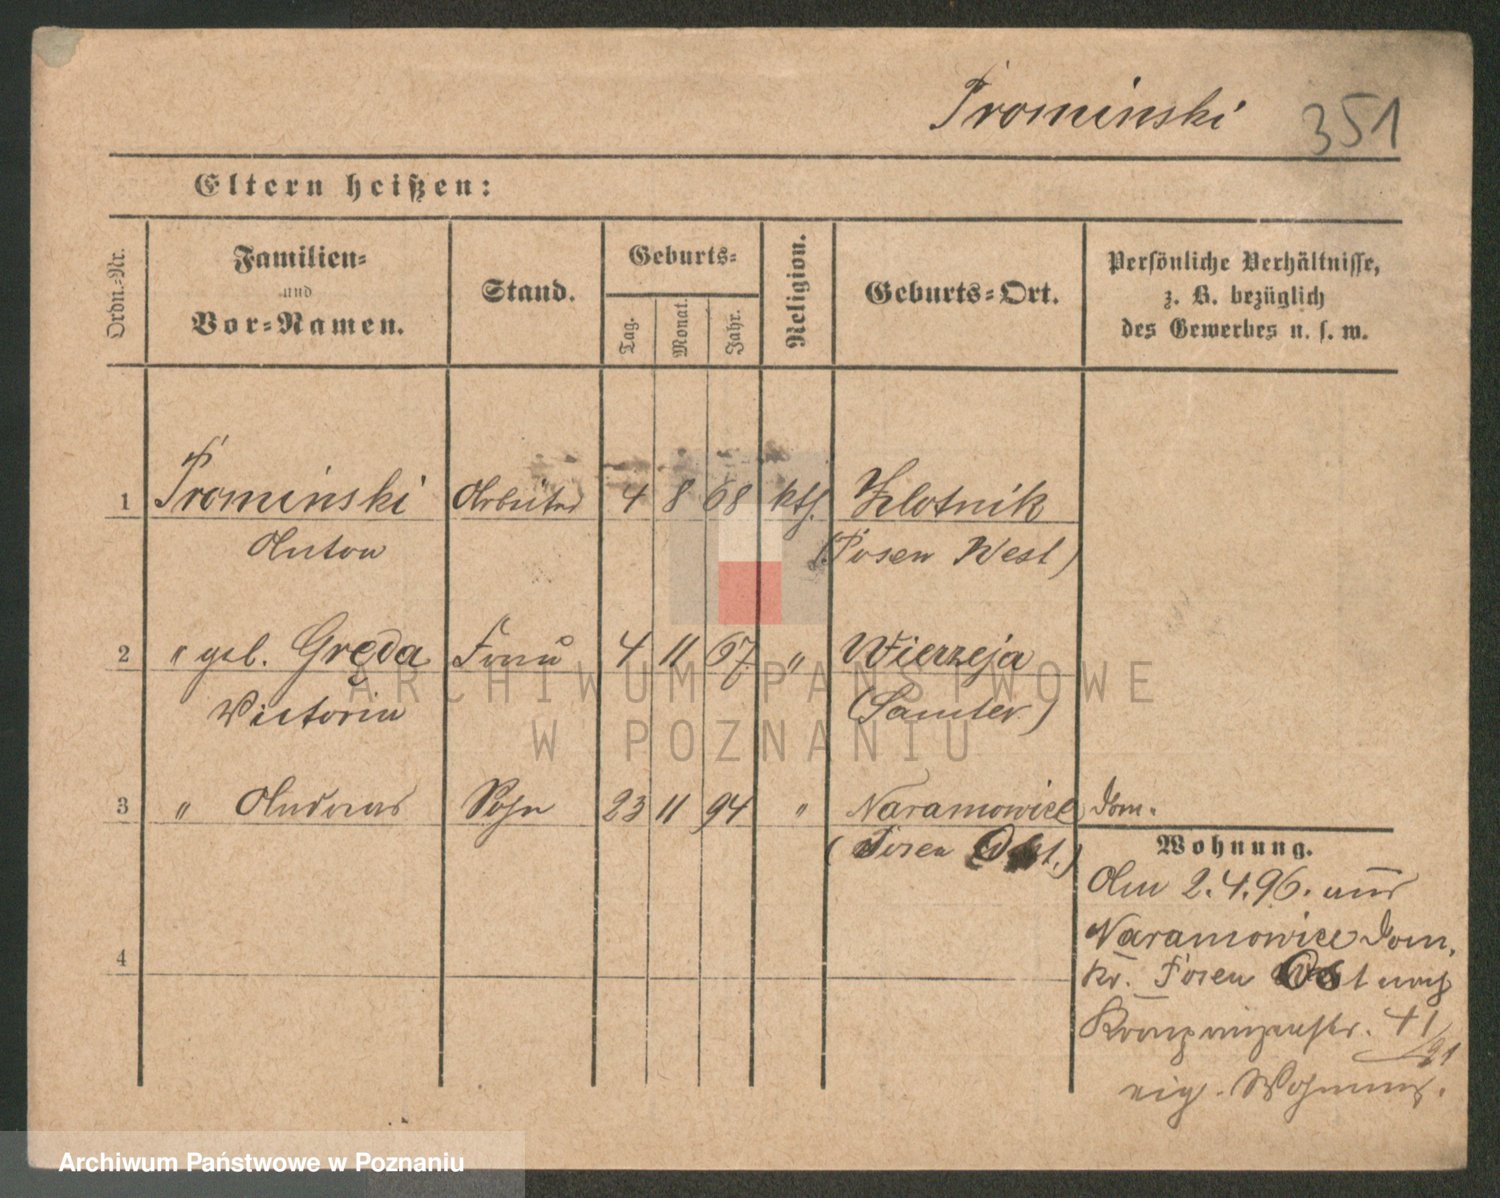 Prominski 351
Eltern heißen:
Ordn.-Nr.
Familien-
und
Vor-Namen.
Stand.
Geburts-
Tag.
Monat.
Jahr.
Religion.
Geburts-Ort.
Persönliche Verhältnisse,
z. B. bezüglich
des Gewerbes u. s. w.
1 Prominski Arbeiter 4 8 68 kth. Zlotnik
Anton (Posen West)
2 " geb. Gręda Frau 4 11 67 " Wierzeja
Victoria (Samter)
3 " Andreas Sohn 23 11 94 " Naramowice Dom.
(Posen Ost.)
Wohnung.
Am 2.4.96. aus
Naramowice Dom.
4
Kr. Posen Ost nach
Kronprinzenstr. 41
/21
eig. Wohnung.
ARCHIWUM PAŃSTWOWE
W POZNANIU
Archiwum Państwowe w Poznaniu